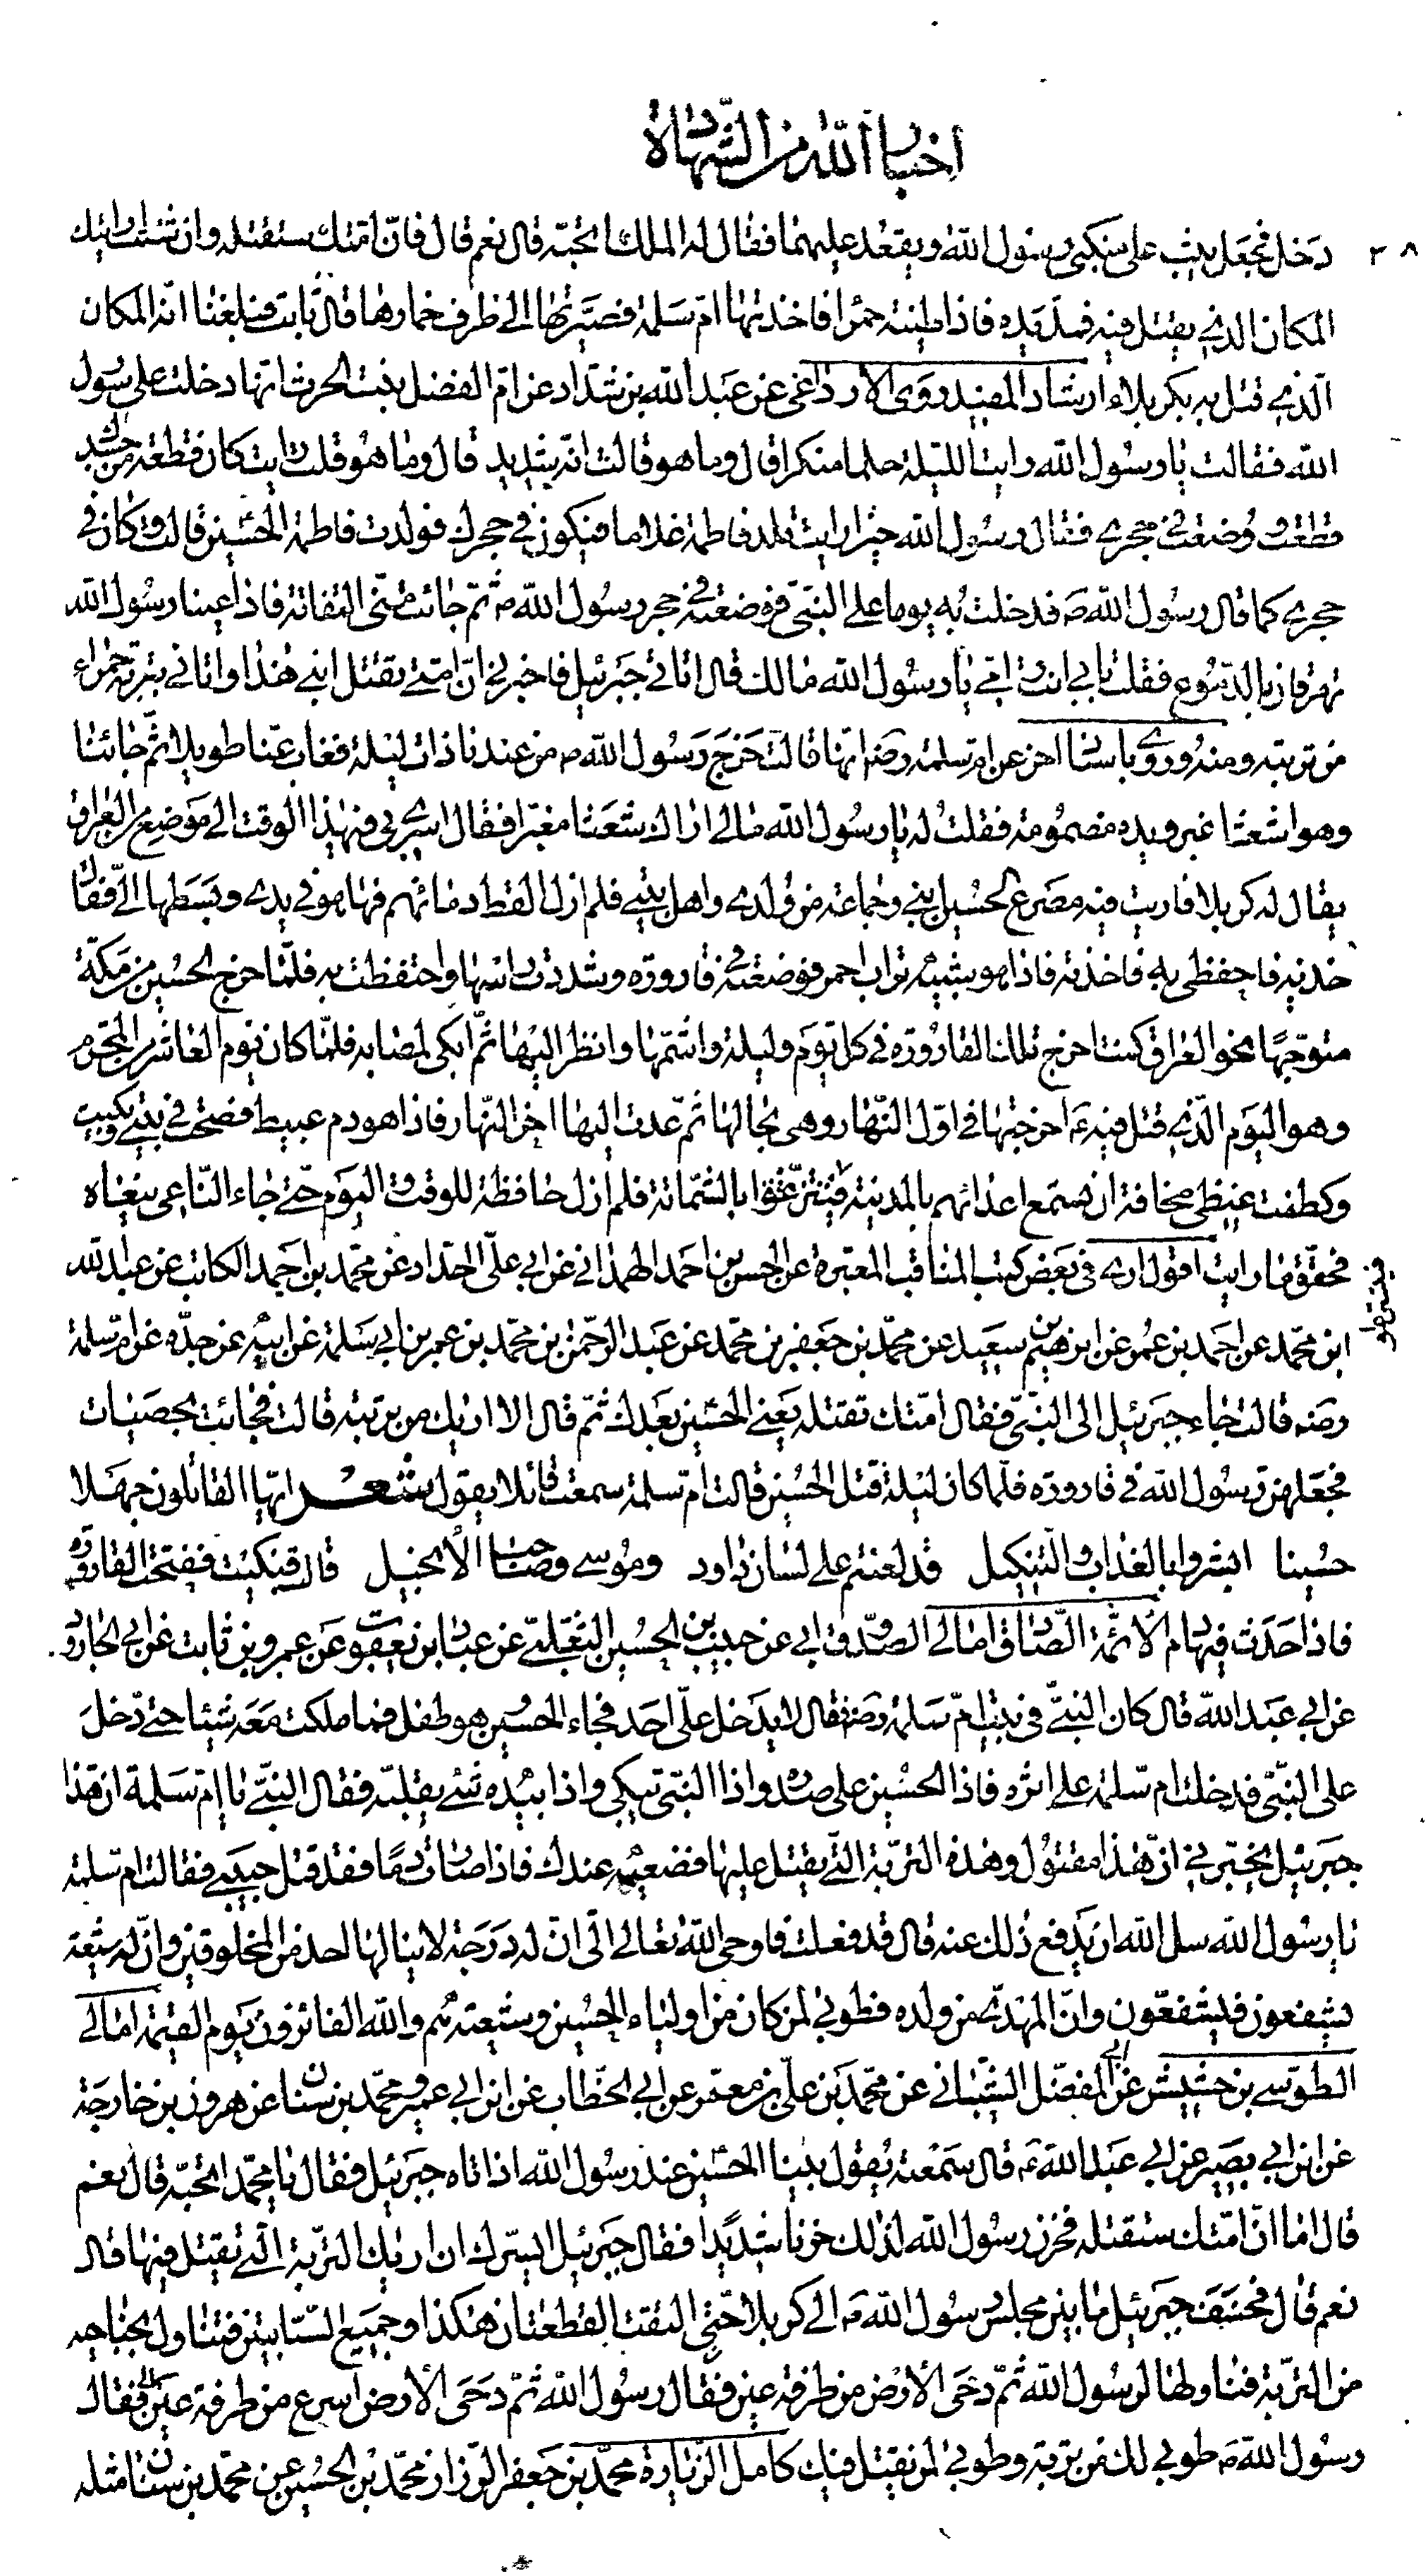 اخبار الله من الشهادة
٣٨
دخل فجعل يثب على منكبى رسول الله ويقعد عليهما فقال له الملك اتحبه قال نعم قال فان امتك ستقتله وان شئت اريتك
المكان الذى يقتل فيه فمد يده فاذا طينة حمرا فاخذتها ام سلمة فصيرتها الى طرف خمارها قال ثابت فبلغنا انه المكان
الذى قتل به بكربلاء ارشاد المفيد روى الأوزاعى عن عبد الله بن شداد عن ام الفضل بنت الحرث انها دخلت على رسول
الله فقالت يا رسول الله رايت الليلة حلما منكرا قال وما هو قالت انه شديد قال وما هو قلت رايت كان قطعة من جسدك
قطعت وضعت فى حجرى فقال رسول الله خيرا رايت تلد فاطمة غلاما فيكون فى حجرك فولدت فاطمة الحسين قالت وكان فى
حجرى كما قال رسول الله ص فدخلت به يوما على النبى فوضعته فى حجر رسول الله ص ثم حانت منى التفاتة فاذا عينا رسول الله
تهرقان بالدموع فقلت بابى انت وامى يا رسول الله مالك قال اتانى جبرئيل فاخبرنى ان امتى يقتل ابنى هذا واتانى بتربة حمراء
من تربته ومنه وروى باسناد اخر عن ام سلمة رضه انها قالت خرج رسول الله ص من عندنا ذات ليلة فغاب عنا طويلا ثم جائنا
وهو اشعث اغبر ويده مضمومة فقلت له يا رسول الله مالى اراك شعثا مغبرا فقال اسرى بى فى هذا الوقت الى موضع من العراق
يقال له كربلا فاريت فيه مصرع الحسين ابنى وجماعة من ولدى واهل بيتى فلم ازل القط دمائهم فها هو فى يدى وبسطها الى فقال
خذيه فاحفظى به فاخذته فاذا هو شبه تراب احمر فوضعته فى قارورة وشددت راسها واحتفظت به فلما خرج الحسين من مكة
متوجها نحو العراق كنت اخرج تلك القارورة فى كل يوم وليلة واشمها وانظر اليها ثم ابكى لمصابه فلما كان يوم العاشر من المحرم
وهو اليوم الذى قتل فيه ع اخرجتها فى اول النهار وهى بحالها ثم عدت اليها اخر النهار فاذا هو دم عبيط فصحت فى بيتى وبكيت
وكظمت غيظى مخافة ان يسمع اعدائهم بالمدينة فيتسرعوا بالشماتة فلم ازل حافظة للوقت واليوم حتى جاء الناعى ينعاه
فحقق ما رايت اقول ارى فى بعض كتب المناقب المعتبرة عن الحسن بن احمد الهمدانى عن ابى على الحداد عن محمد بن احمد الكاتب عن عبد الله
ابن محمد عن احمد بن عمرو عن ابرهيم بن سعيد عن محمد بن جعفر بن محمد عن عبد الرحمن بن محمد بن عمر بن ابى سلمة عن ابيه عن جده عن ام سلمة
رضه قالت جاء جبرئيل الى النبى فقال امتك تقتله يعنى الحسين بعدك ثم قال الا اريك من تربته قالت فجائت بحصيات
فجعلهن رسول الله فى قارورة فلما كان ليلة قتل الحسين قالت ام سلمة سمعت قائلا يقول شعر ايها القاتلون جهلا
حسينا ابشروا بالعذاب والتنكيل قد لعنتم على لسان داود وموسى وصاحب الانجيل قالت فبكيت ففتحت القارورة
فاذا حدث فيها دم الأئمة الصادق امالى الصدوق ابى عن حبيب بن الحسين التغلبى عن عباد بن يعقوب عن عمرو بن ثابت عن ابى الجارود
عن ابى عبد الله قال كان النبى فى بيت ام سلمة رضه فقال لا يدخل على احد فجاء الحسين وهو طفل فما ملكت معه شيئا حتى دخل
على النبى فدخلت ام سلمة على اثره فاذا الحسين على صدره واذا النبى يبكى واذا بيده شئ يقلبه فقال النبى يا ام سلمة ان هذا
جبرئيل يخبرنى ان هذا مقتول وهذه التربة التى يقتل عليها فضعيه عندك فاذا صارت دما فقد قتل حبيبى فقالت ام سلمة
يا رسول الله سل الله ان يدفع ذلك عنه قال قد فعلت فاوحى الله تعالى الى ان له درجة لا ينالها احد من المخلوقين وان له شيعة
يشفعون فيشفعون وان المهدى من ولده فطوبى لمن كان من اولياء الحسين وشيعته هم والله الفائزون يوم القيمة امالى
الطوسى بن حشيش عن ابى المفضل الشيبانى عن محمد بن على بن معمر عن ابى الخطاب عن ابن ابى عمير ومحمد بن سنان عن هرون بن خارجة
عن ابن ابى بصير عن ابى عبد الله ع قال سمعته يقول بينا الحسين عند رسول الله اذ اتاه جبرئيل فقال يا محمد اتحبه قال نعم
قال اما ان امتك ستقتله فحزن رسول الله لذلك حزنا شديدا فقال جبرئيل ايسرك ان اريك التربة التى يقتل فيها قال
نعم قال فخسف جبرئيل ما بين مجلس رسول الله ص الى كربلا حتى التقت القطعتان هكذا وجمع السبابتين فتناول بجناحيه
من التربة فناولها لرسول الله ثم دحى الأرض من طرفة عين فقال رسول الله ثم دحى الأرض اسرع من طرفة عين فقال
رسول الله ص طوبى لك من تربة وطوبى لمن يقتل فيك كامل الزيارة محمد بن جعفر الرزاز محمد بن الحسين عن محمد بن سنان مثله